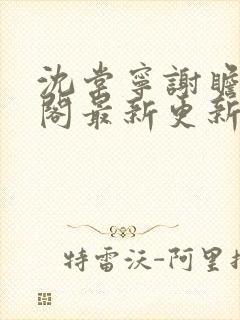 沈棠寧謝瞻
閣最新更新
特雷沃-阿里扎